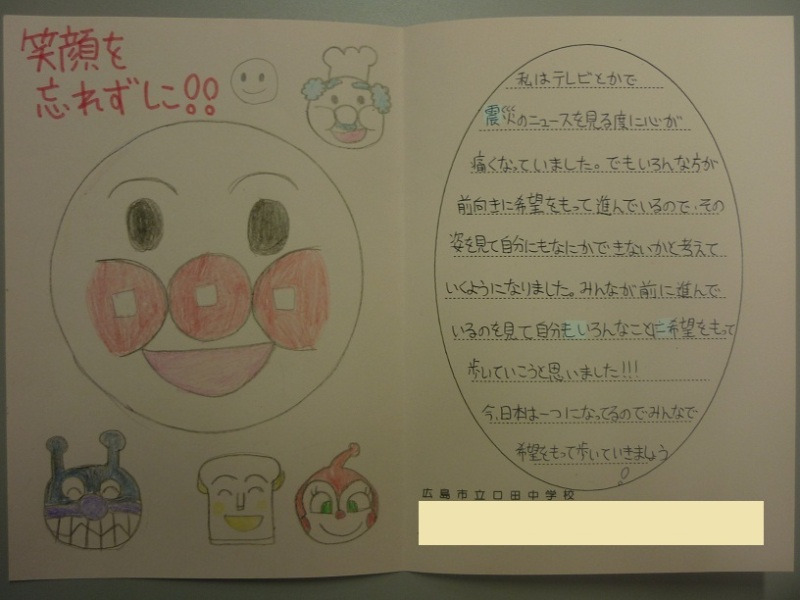 笑顔を
忘れずに!!
私はテレビとかで
震災のニュースを見る度に心が
痛くなっていました。でもいろんな方が
前向きに希望をもって進んでいるので、その
姿を見て自分にもなにかできないかと考えて
いくようになりました。みんなが前に進んで
いるのを見て自分もいろんなことに希望をもって
歩いていこうと思いました!!!
今、日本は一つになってるのでみんなで
希望をもって歩いていきましょう!
広島市立口田中学校